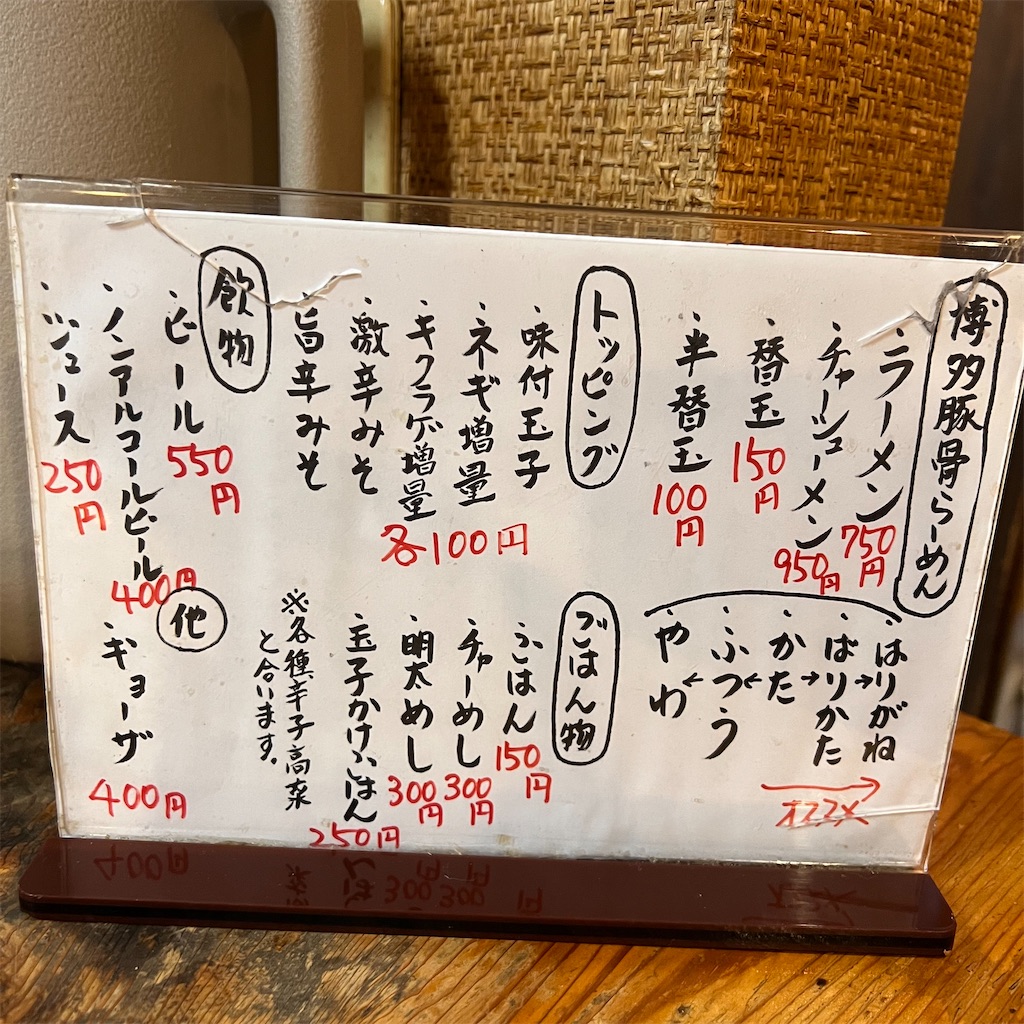 博多豚骨らーめん
・ラーメン 750円
・チャーシューメン 950円
・替玉 150円
・半替玉 100円
・はりがね
・ばりかた
・かた
・ふつう
・やわ
→ → ← ←
オススメ
トッピング
・味付玉子
・ネギ増量
・キクラゲ増量
・激辛みそ
・旨辛みそ
各100円
ごはん物
・ごはん 150円
・チャーめし 300円
・明太めし 300円
・玉子かけごはん 250円
※各種辛子高菜
と合います。
飲物
・ビール 550円
・ノンアルコールビール 400円
・ジュース 250円
他
・ギョーザ 400円